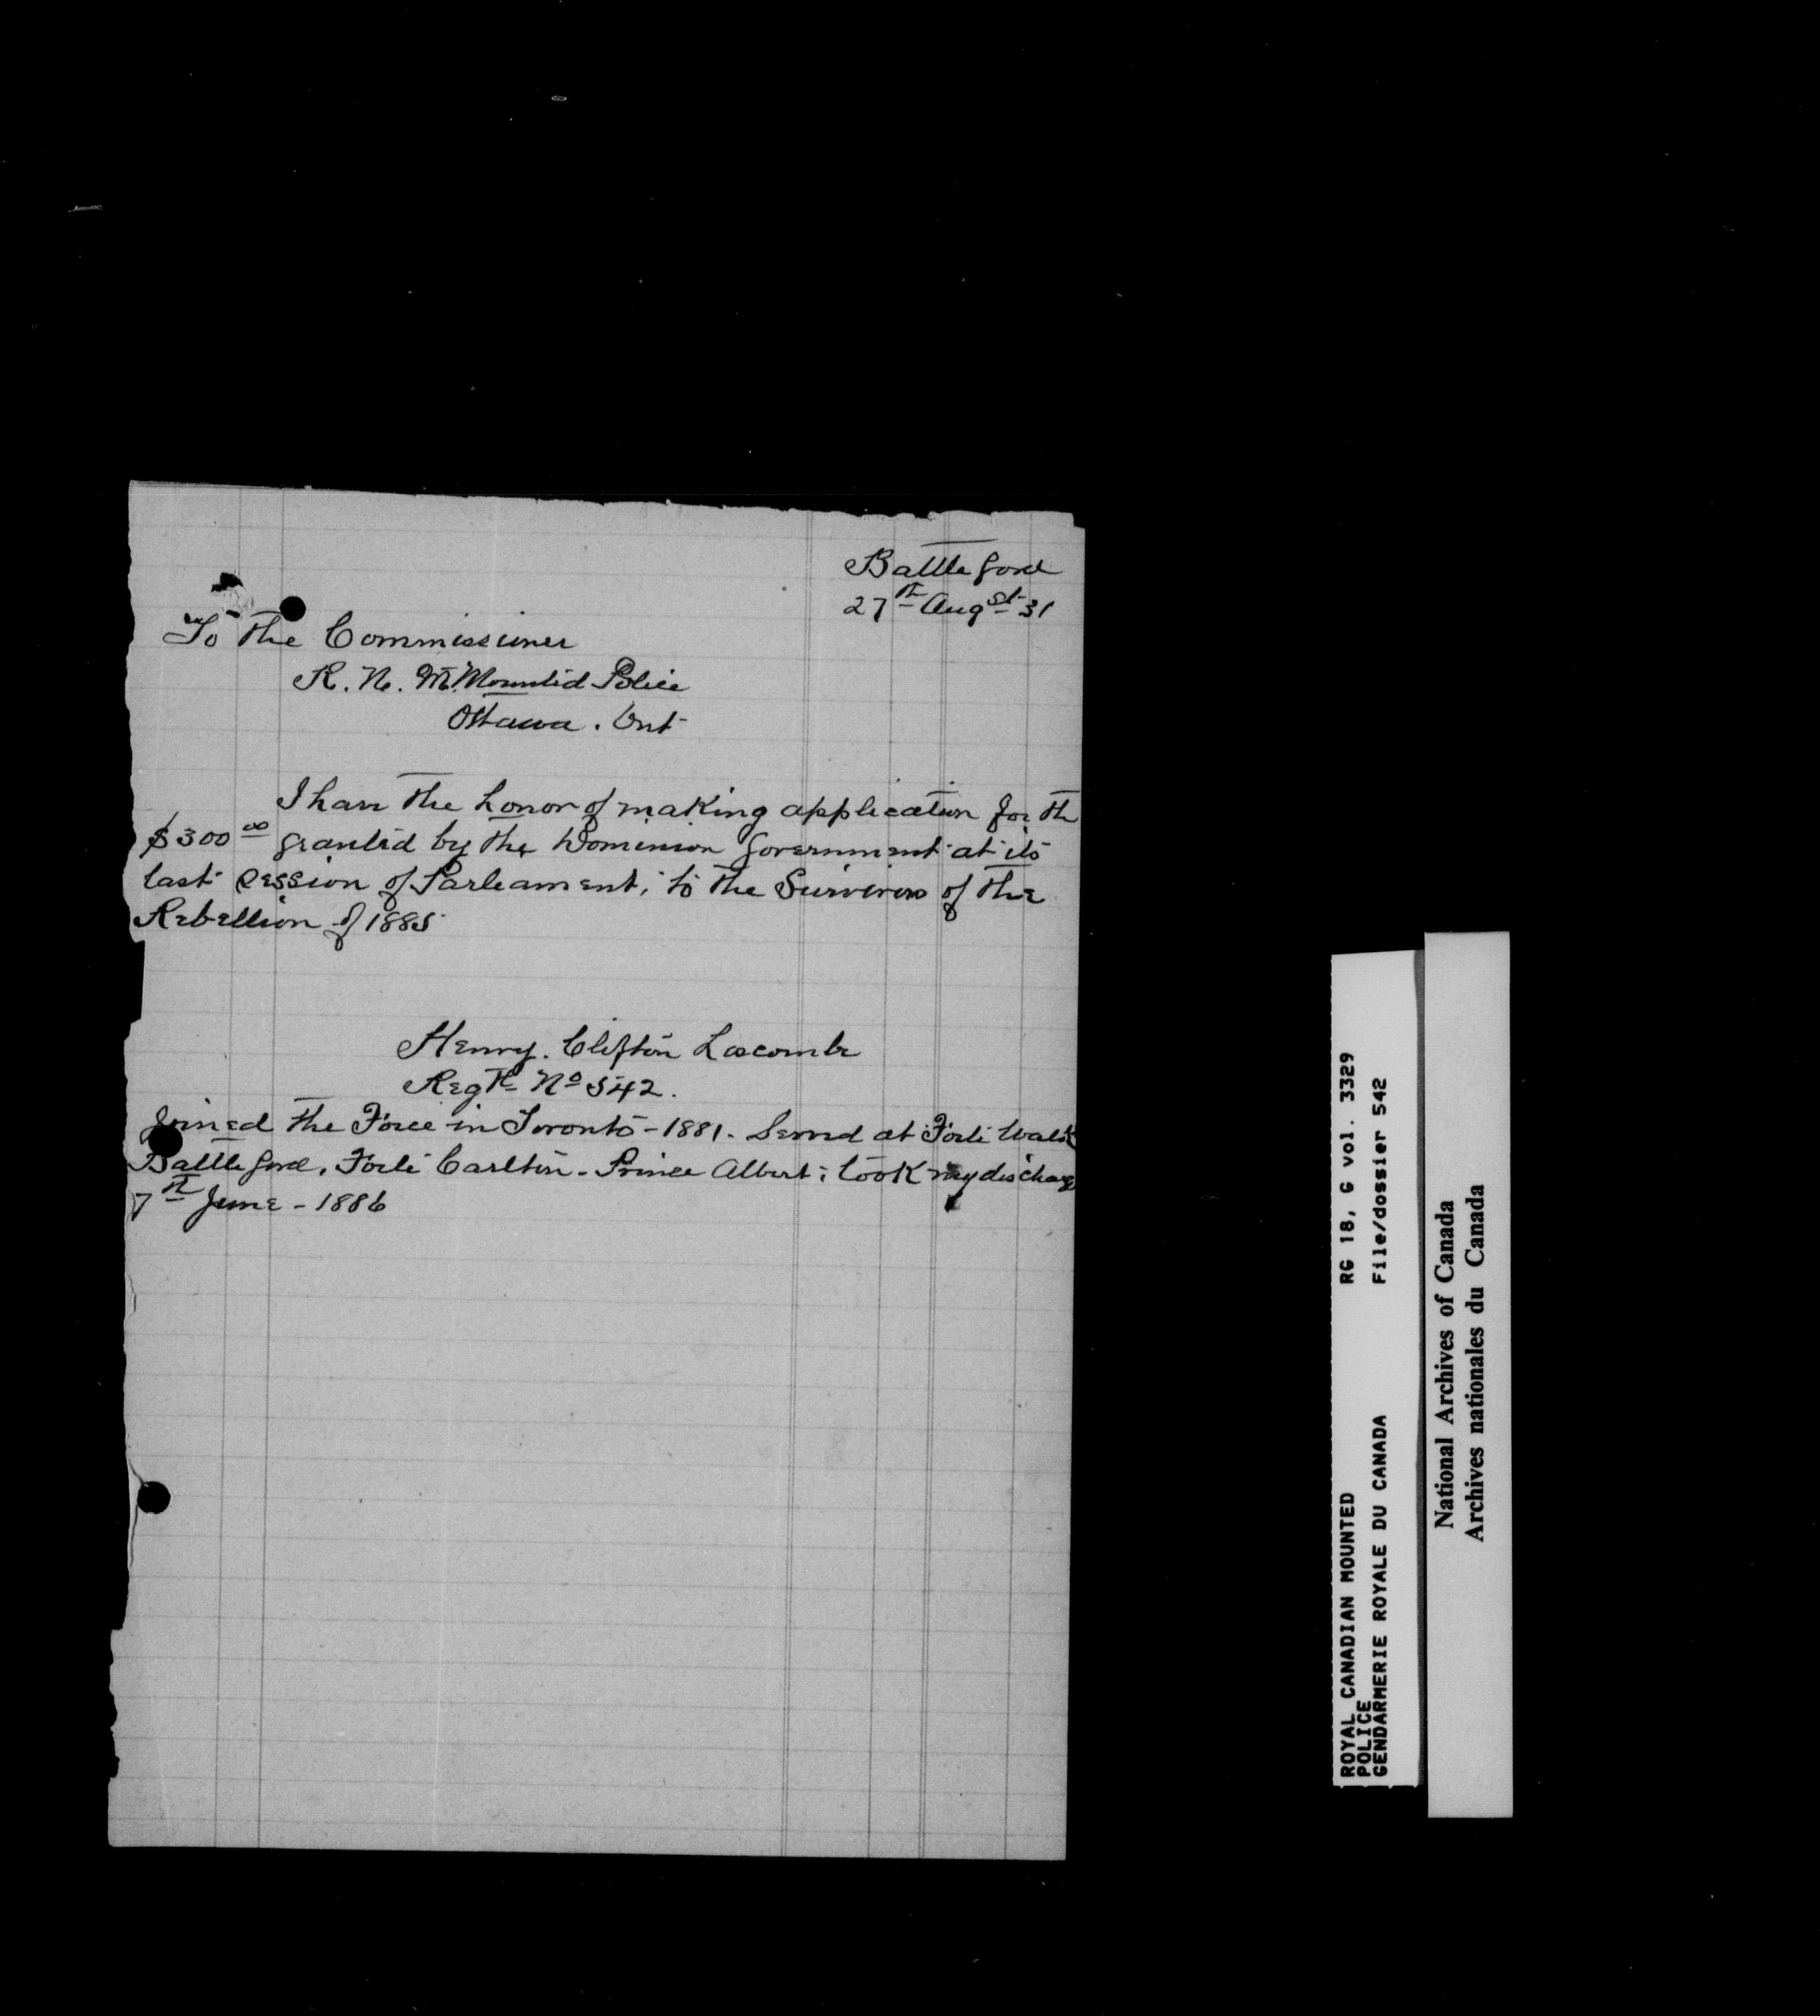 Battleford
27th Augst 31
To The Commissioner
R. N. M. Mounted Police
Ottawa. Ont
I have the honor of making application for th
$300 00 granted by the Dominion Government at its
last Session of Parleament, to the Survivors of the
Rebellion of 1885
Henry. Clifton Loscombe
Regtl No 542.
Joined the Force in Toronto - 1881. Served at Forte Walsh
Battleford, Forte Carlton - Prince Albert; took my discharg
7th June - 1886
ROYAL CANADIAN MOUNTED RG 18, G vol. 3329
POLICE
GENDARMERIE ROYALE DU CANADA File/dossier 542
National Archives of Canada
Archives nationales du Canada